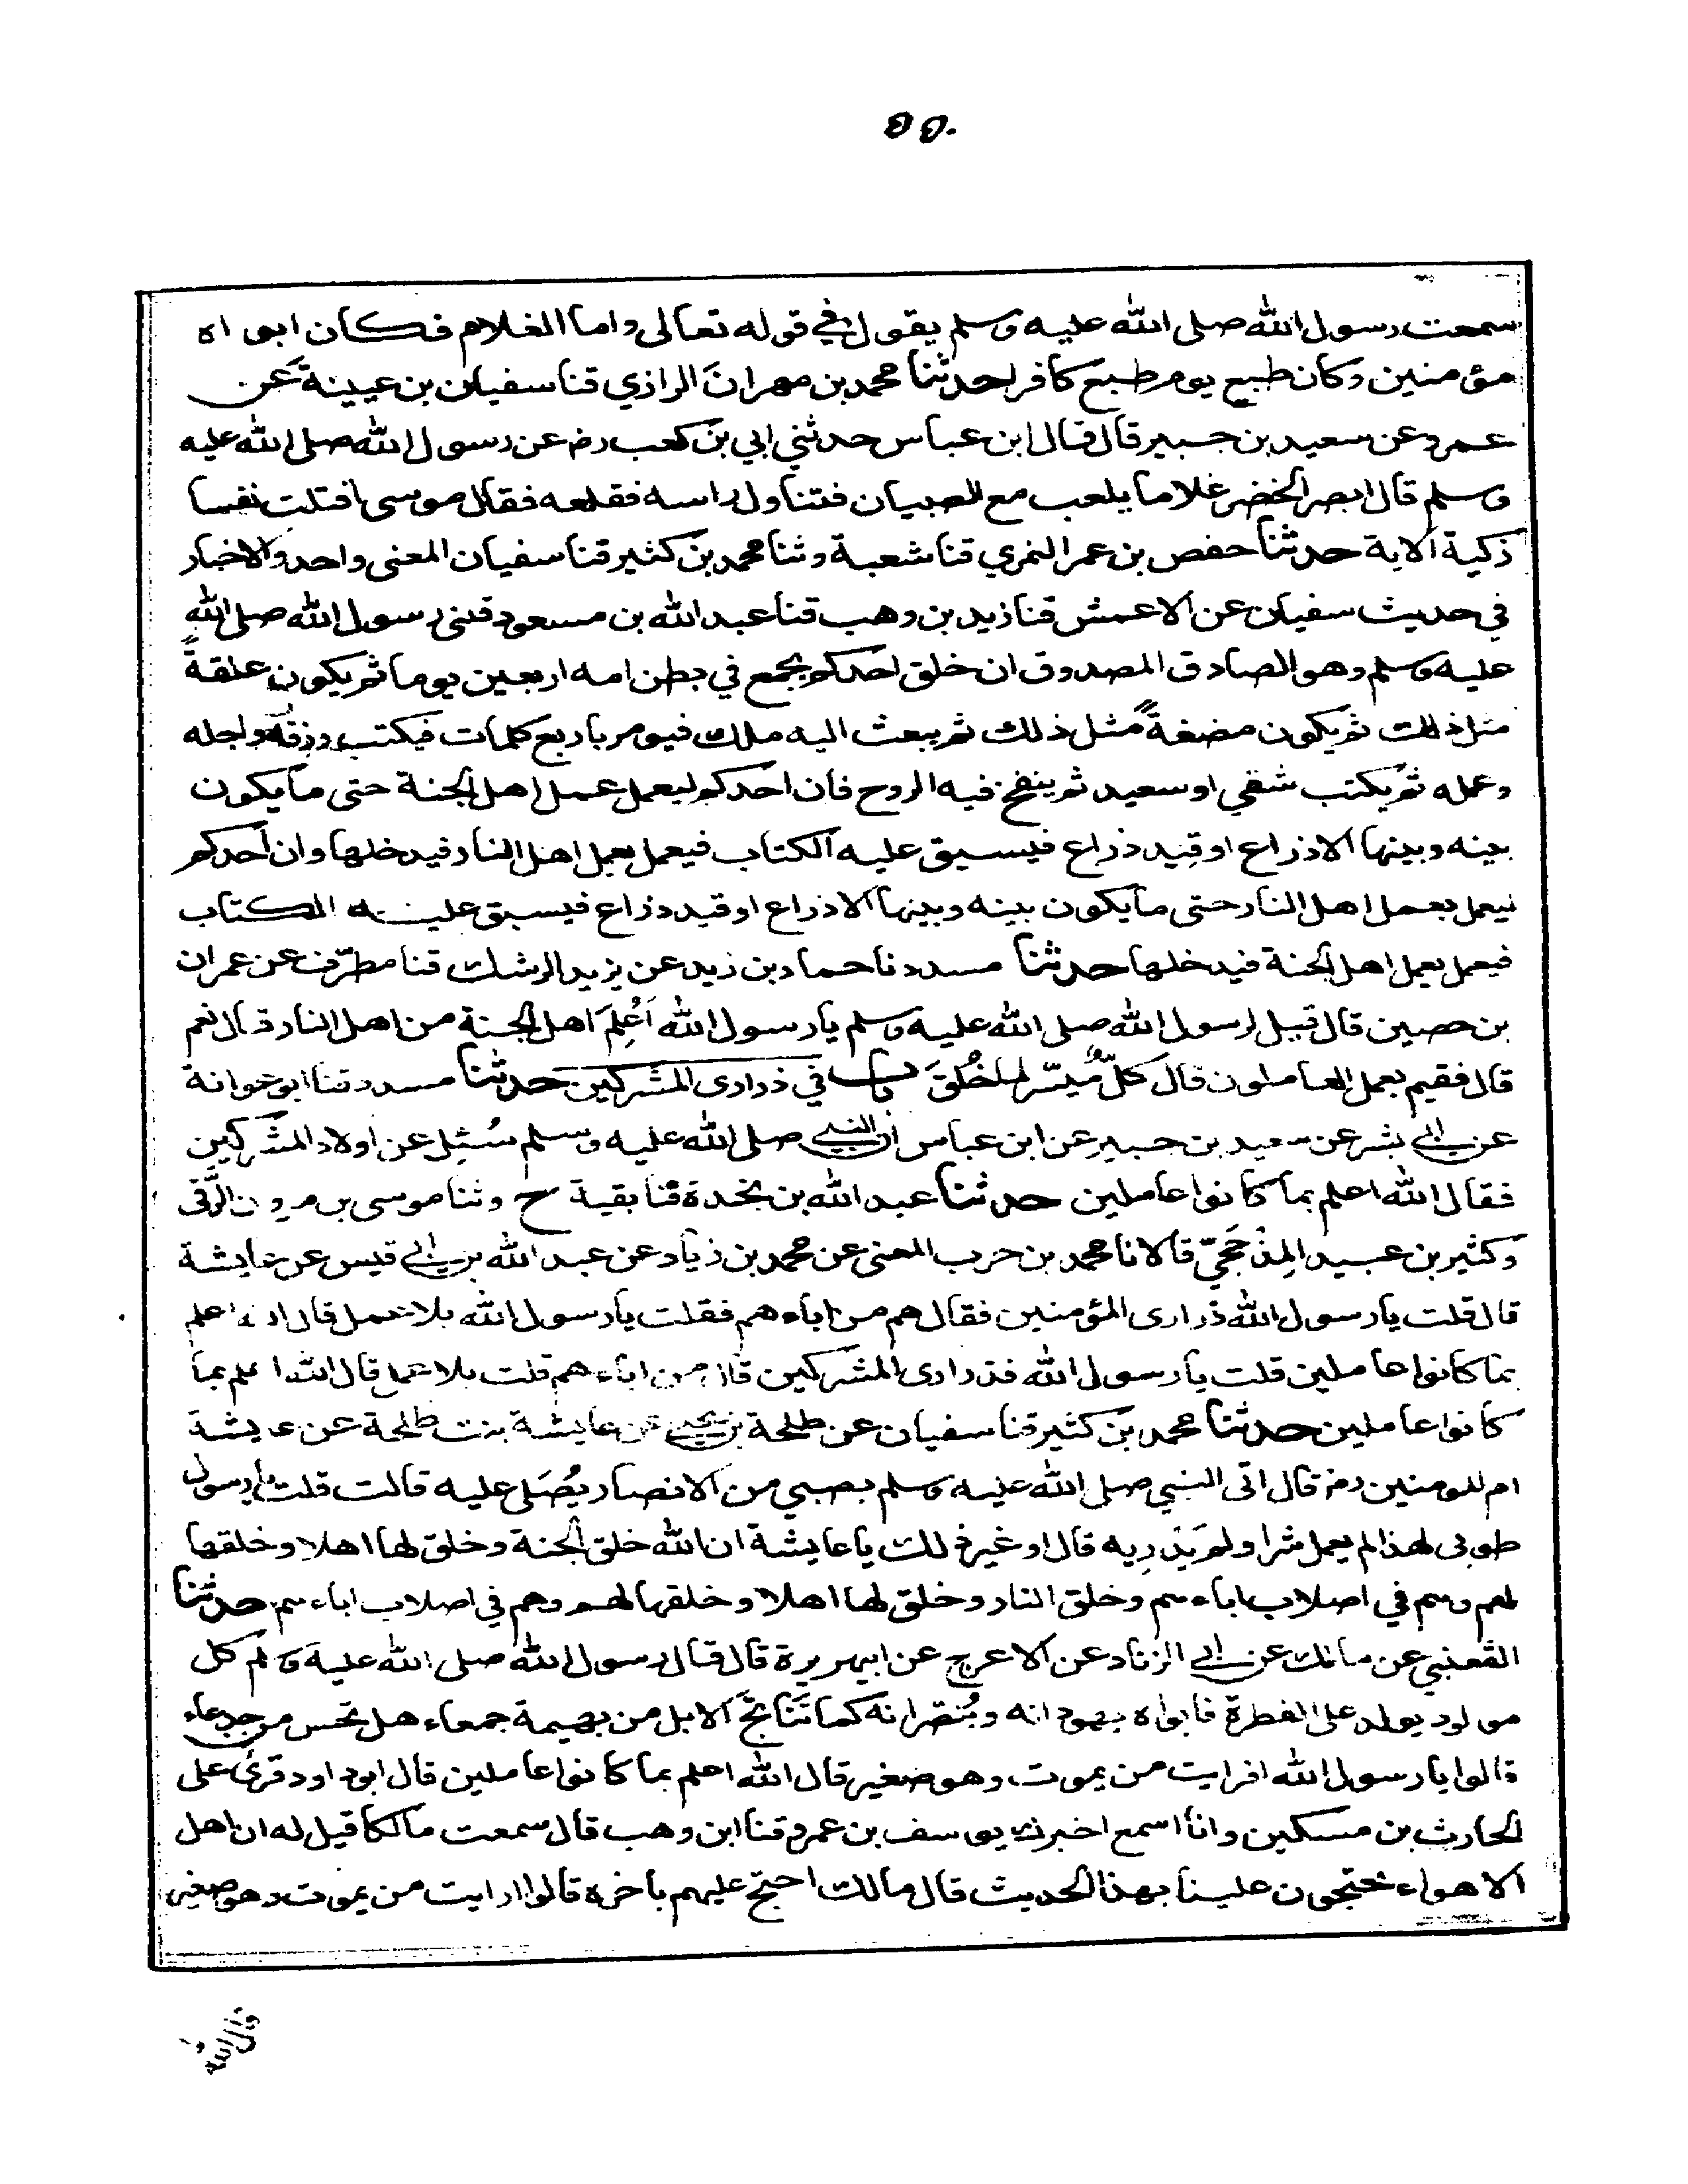 ٥٩٠
سمعت رسول الله صلى الله عليه وسلم يقول في قوله تعالى واما الغلام فكان ابواه
مؤمنين وكان طبع يوم طبع كافرا حدثنا محمد بن مهران الرازي قثنا سفيان بن عيينة عن
عمرو عن سعيد بن جبير قال قال ابن عباس حدثني ابي بن كعب رض عن رسول الله صلى الله عليه
وسلم قال ابصر الخضر غلاما يلعب مع الصبيان فتناول راسه فقلعه فقال موسى اقتلت نفسا
زكية الاية حدثنا حفص بن عمر النمري قثنا شعبة وثنا محمد بن كثير قثنا سفيان المعنى واحد والاخبار
في حديث سفيان عن الاعمش قثنا زيد بن وهب قثنا عبد الله بن مسعود قثنى رسول الله صلى الله
عليه وسلم وهو الصادق المصدوق ان خلق احدكم يجمع في بطن امه اربعين يوما ثم يكون علقةً
مثل ذلك ثم يكون مضغةً مثل ذلك ثم يبعث اليه ملك فيومر باربع كلمات فيكتب رزقه واجله
وعمله ثم يكتب شقي او سعيد ثم ينفخ فيه الروح فان احدكم ليعمل عمل اهل الجنة حتى ما يكون
بينه وبينها الا ذراع او قيد ذراع فيسبق عليه الكتاب فيعمل بعمل اهل النار فيدخلها وان احدكم
ليعمل بعمل اهل النار حتى ما يكون بينه وبينها الا ذراع او قيد ذراع فيسبق عليه الكتاب
فيعمل بعمل اهل الجنة فيدخلها حدثنا مسدد نا حماد بن زيد عن يزيد الرشك قثنا مطرّف عن عمران
بن حصين قال قيل لرسول الله صلى الله عليه وسلم يا رسول الله اَعُلِمَ اهل الجنة من اهل النار قال نعم
قال ففيم يعمل العاملون قال كلٌّ مُيسّر لما خُلق باب في ذراري المشركين حدثنا مسدد قثنا ابو عوانة
عن ابي بشر عن سعيد بن جبير عن ابن عباس ان النبي صلى الله عليه وسلم سُئِل عن اولاد المشركين
فقال الله اعلم بما كانوا عاملين حدثنا عبد الله بن نجدة قثنا بقية ح وثنا موسى بن مرون الرَّقي
وكثير بن عبيد المِذْحَجيّ قالا نا محمد بن حرب المعنى عن محمد بن زياد عن عبد الله بن ابي قيس عن عايشة
قال قلت يا رسول الله ذراري المؤمنين فقال هم من اباءهم فقلت يا رسول الله بلا عمل قال الله اعلم
بما كانوا عاملين قلت يا رسول الله فذراري المشركين قال من اباءهم قلت بلا عمل قال الله اعلم بما
كانوا عاملين حدثنا محمد بن كثير قثنا سفيان عن طلحة بن يحيى عن عايشة بنت طلحة عن عايشة
ام المومنين رض قال اتى النبي صلى الله عليه وسلم بصبي من الانصار يُصَلى عليه قالت قلت يا رسول
طوبى لهذا لم يعمل شرا ولم يَدْرِ به قال او غير ذلك يا عايشة ان الله خلق الجنة وخلق لها اهلا وخلقها
لهم وهم في اصلاب اباءهم وخلق النار وخلق لها اهلا وخلقها لهم وهم في اصلاب اباءهم حدثنا
القعنبي عن مالك عن ابي الزناد عن الاعرج عن ابي هريرة قال قال رسول الله صلى الله عليه وسلم كل
مولود يولد على الفطرة فابواه يهودانه ويُنصّرانه كما تَنَاتَجُ الابل من بهيمة جمعاء هل تحس من جدعاء
قالوا يا رسول الله افرايت من يموت وهو صغير قال الله اعلم بما كانوا عاملين قال ابو داود قرئ على
الحارث بن مسكين وانا اسمع اخبرك يوسف بن عمرو قثنا ابن وهب قال سمعت مالكا قيل له ان اهل
الاهواء يحتجون علينا بهذا الحديث قال مالك احتج عليهم باخره قالوا ارايت من يموت وهو صغير
قال الله